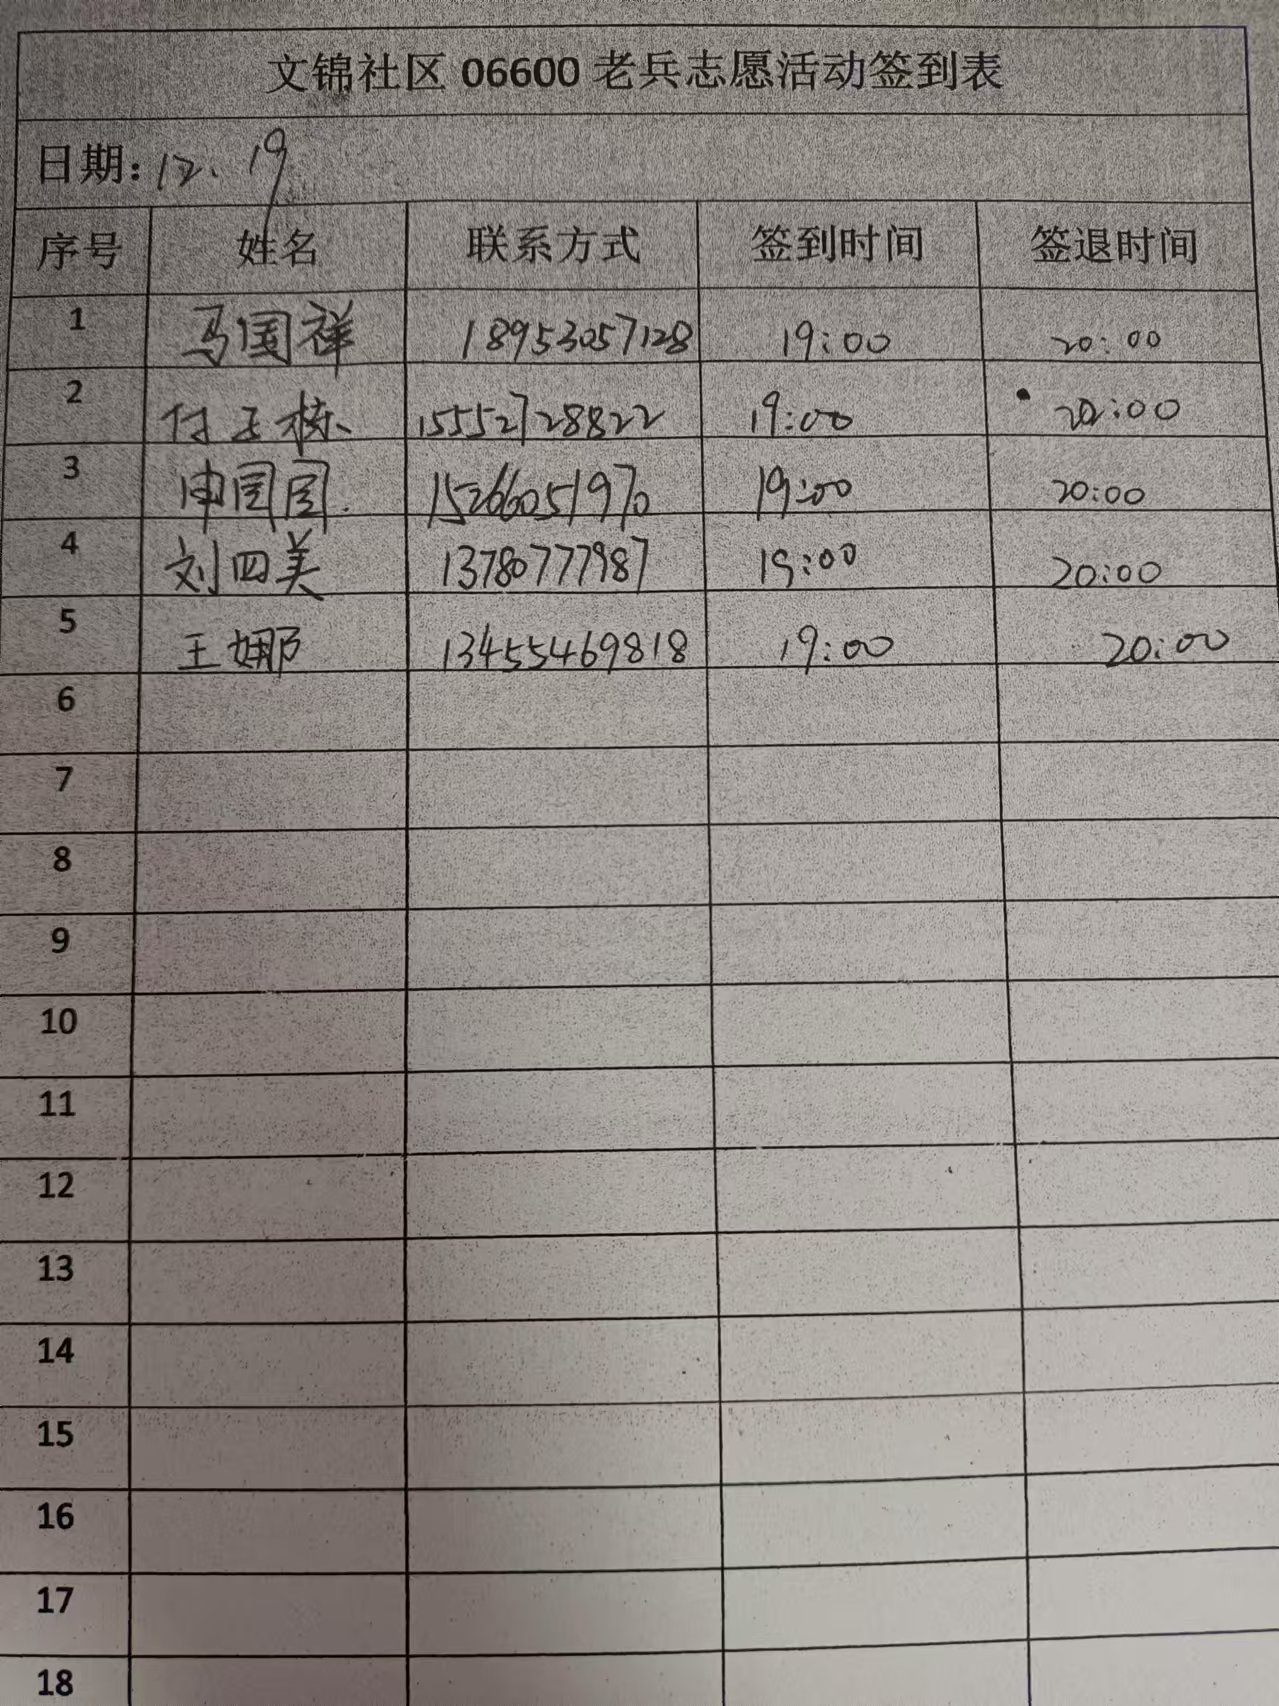 文锦社区 06600 老兵志愿活动签到表
日期: 12、19
序号 姓名 联系方式 签到时间 签退时间
1 马国祥 18953057128 19:00 20:00
2 付玉栋 15552728822 19:00 20:00
3 申国国 15266051970 19:00 20:00
4 刘四美 13780777987 19:00 20:00
5 王娜 13455469818 19:00 20:00
6
7
8
9
10
11
12
13
14
15
16
17
18